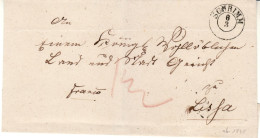 SCHRIMM
6
3
An
einen Königl Wohllöblichen
Land und Stadt Gericht
zu
franco
Lissa